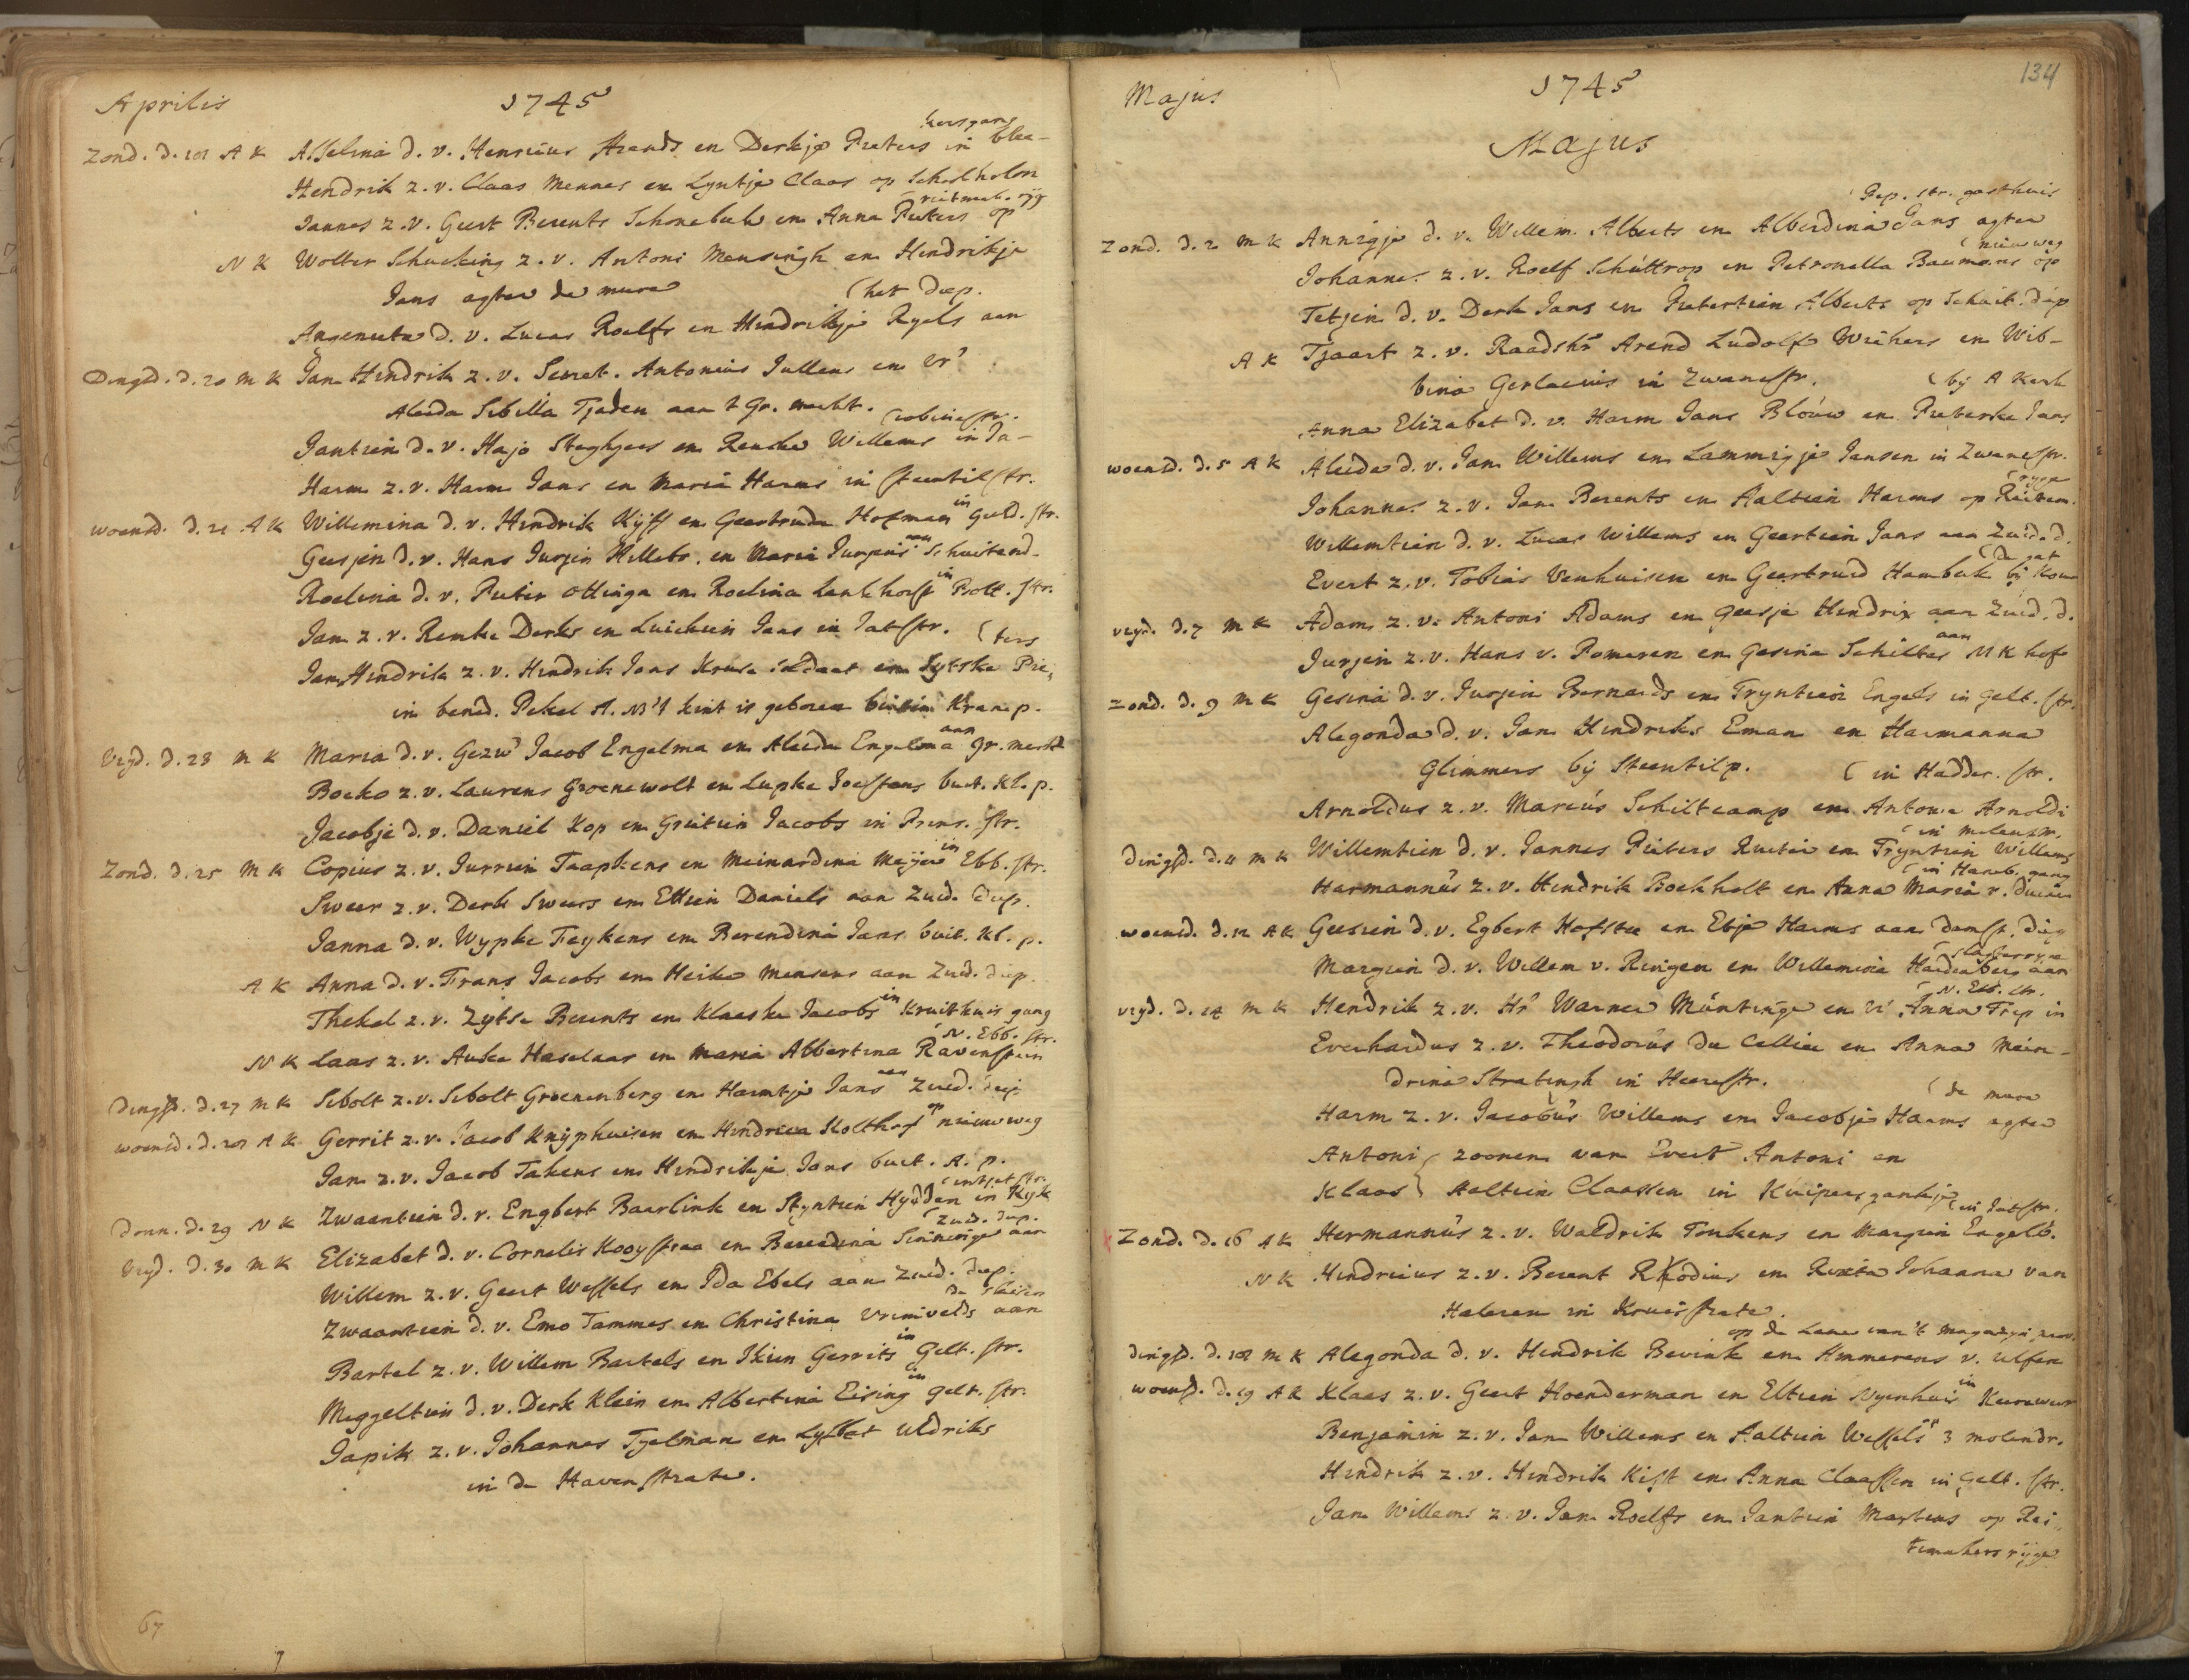 Aprilis 1745
Zond. d. 18 A K Asselina d. v. Henricus Arends en Derkje Pieters in blee-
kersgang
Hendrik z. v. Claas Mennes en Lyntje Claas op Schoolholm
Jannes z. v. Geert Berents Schonebeek en Anna Pieters op
reitmak. ryg
N K Wolter Schucking z. v. Antoni Mensingh en Hendrikje
Jans agter de mure
Angeneeta d. v. Lucas Roelfs en Hindrikje Ryels aan
(het diep.
Dingsd. d. 20 M K Jan Hindrik z. v. Secret. Antonius Jullens en Vr
Aleida Sibilla Tjaden aan 't Gr. markt.
Jantien d. v. Hajo Steghgees en Renske Willems in Ja-
(cobinestr.
Harm z. v. Harm Jans en Maria Harms in steentilstr.
woensd. d. 21 A K Willemina d. v. Hindrik Kijff en Geertruda Hofman in Geld. str.
Geesjen d. v. Hans Jurjen Hillebr. en Maria Jurjens aan Schuitend-
Roelina d. v. Pieter Ottinga en Roelina Lankhorst in Pott. str.
Jan z. v. Remke Derks en Luichien Jans in Jatstr.
Jan Hindrik z. v. Hindrik Jans Kruse soldaat en Sytske Pie-
(ters
in bened. Pekel A. NB 't kint is geboren binnen Kranp.
Vryd. d. 23 M K Maria d. v. Gezw Jacob Engelma en Aleida Engelma aan Gr. merkt
Boeko z. v. Laurens Groenewolt en Lupke Joestens buit. Kl. p.
Jacobje d. v. Daniel Kop en Grietien Jacobs in Prins. str.
Zond. d. 25 M K Copius z. v. Jurrien Taapkens en Meinardina Meyer in Ebb. str.
Sweer z. v. Derk Sweers en Ettien Daniels aan Zuid. diep.
Janna d. v. Wypke Feykens en Berendina Jans buit. Kl. p.
A K Anna d. v. Frans Jacobs en Heike Mensens aan Zuid. diep.
Thekel z. v. Zytse Berents en Klaaske Jacobs in Kruithuis gang
N K Laas z. v. Auke Haselaar en Maria Albertina Ravenstein
(N. Ebb. str.
Dingsd. d. 27 M K Sebolt z. v. Sebolt Groenenberg en Harmtje Jans aan Zuid. diep
woensd. d. 28 A K Gerrit z. v. Jacob Knijphuisen en Hindrica Kolthof op nieuweweg
Jan z. v. Jacob Takens en Hindrikje Jans buit. A. p.
Donn. d. 29 N K Zwaantien d. v. Engbert Baarlink en Styntien Hydden in Kyk
(intjatstr.
Vryd. d. 30 M K Elizabet d. v. Cornelis Kooystraa en Berendina Sinninge aan
(Zuid. diep.
Willem z. v. Geert Wessels en Ida Ebels aan Zuid. diep.
Zwaantien d. v. Emo Tammes en Christina Vrimvelds aan
de sluisen
Bartel z. v. Willem Bartels en Ikien Gerrits in Gelt. str.
Meggeltien d. v. Derk Klein en Albertina Eising in Gelt. str.
Japik z. v. Johannes Tyelman en Lysbet Uldriks
in de Havenstrate.
67
Majus 1745 134
Majus
Zond. d. 2 M K Annigje d. v. Willem Alberts en Alberdina Gans agter
(Pep. str. gasthuis
Johannes z. v. Roelf Schüttrop en Petronella Baumans op
(nieuweg
Tetjen d. v. Derk Jans en Pietertien Alberts op Schuit. diep
A K Tjaart z. v. Raadshr Arend Ludolf Wichers en Wib-
bina Gerlacius in Zwanestr.
Anna Elizabet d. v. Harm Jans Blouw en Pieterke Jans
(bij A Kerk
woensd. d. 5 A K Aleida d. v. Jan Willems en Lammigje Jansen in Zwanestr.
Johannes z. v. Jan Berents en Aaltien Harms op Reitem.
(ryge
Willemtien d. v. Lucas Willems en Geertien Jans aan Zuid. d.
Evert z. v. Tobias Venhuisen en Geertruid Hambuk bij Kou
(de gat
vryd. d. 7 M K Adam z. v. Antoni Adams en Geesje Hindrix aan Zuid. d.
Jurjen z. v. Hans v. Pomeren en Gesina Schilter aan M K hof
Zond. d. 9 M K Gesina d. v. Jurjen Bernards en Tryntien Engels in Gelt. str.
Alegonda d. v. Jan Hindriks Eman en Harmanna
Glimmers bij Steentilp.
Arnoldus z. v. Marcus Schiltcamp en Antonia Arnoldi
(in Hadder. str.
Dingsd. d. 11 M K Willemtien d. v. Jannes Pieters Ruiter en Tryntien Willems
(in molenstr.
Harmannus z. v. Hindrik Boekholt en Anna Maria v. Duinen
(in Haneb. gang
woensd. d. 12 A K Geesien d. v. Egbert Hofstee en Ebje Harms aan damst. diep
Margien d. v. Willem v. Ringen en Willemina Hardenberg aan
vryd. d. 14 M K Hendrik z. v. Hr Warner Müntinge en Vr Anna Trip in
(N. Ebb. str.
Everhardus z. v. Theodorus du Cellier en Anna Mein-
drina Stratingh in Heerestr.
Harm z. v. Jacobus Willems en Jacobje Harms agter
(de mure
Antoni } zoonen van Evert Antoni en
Klaas } Aaltien Claassen in Kuipers gankje
Zond. d. 16 A K Hermannus z. v. Waldrik Tonkens en Margien Engelb.
(in Jatstr.
N K Hindricus z. v. Berent Rhodius en Rixta Johanna van
Halsren in Kruisstrate.
Dingsd. d. 18 M K Alegonda d. v. Hindrik Bevink en Ammerens v. Ulsen
woensd. d. 19 A K Klaas z. v. Geert Hoenderman en Eltien Nyenhuis in Keureweer
Benjamin z. v. Jan Willems en Aaltien Wessels 3 molendr.
Hindrik z. v. Hindrik Kist en Anna Claassen in Gelt. str.
Jan Willems z. v. Jan Roelfs en Jantien Martens op Rei-
temakers rijge